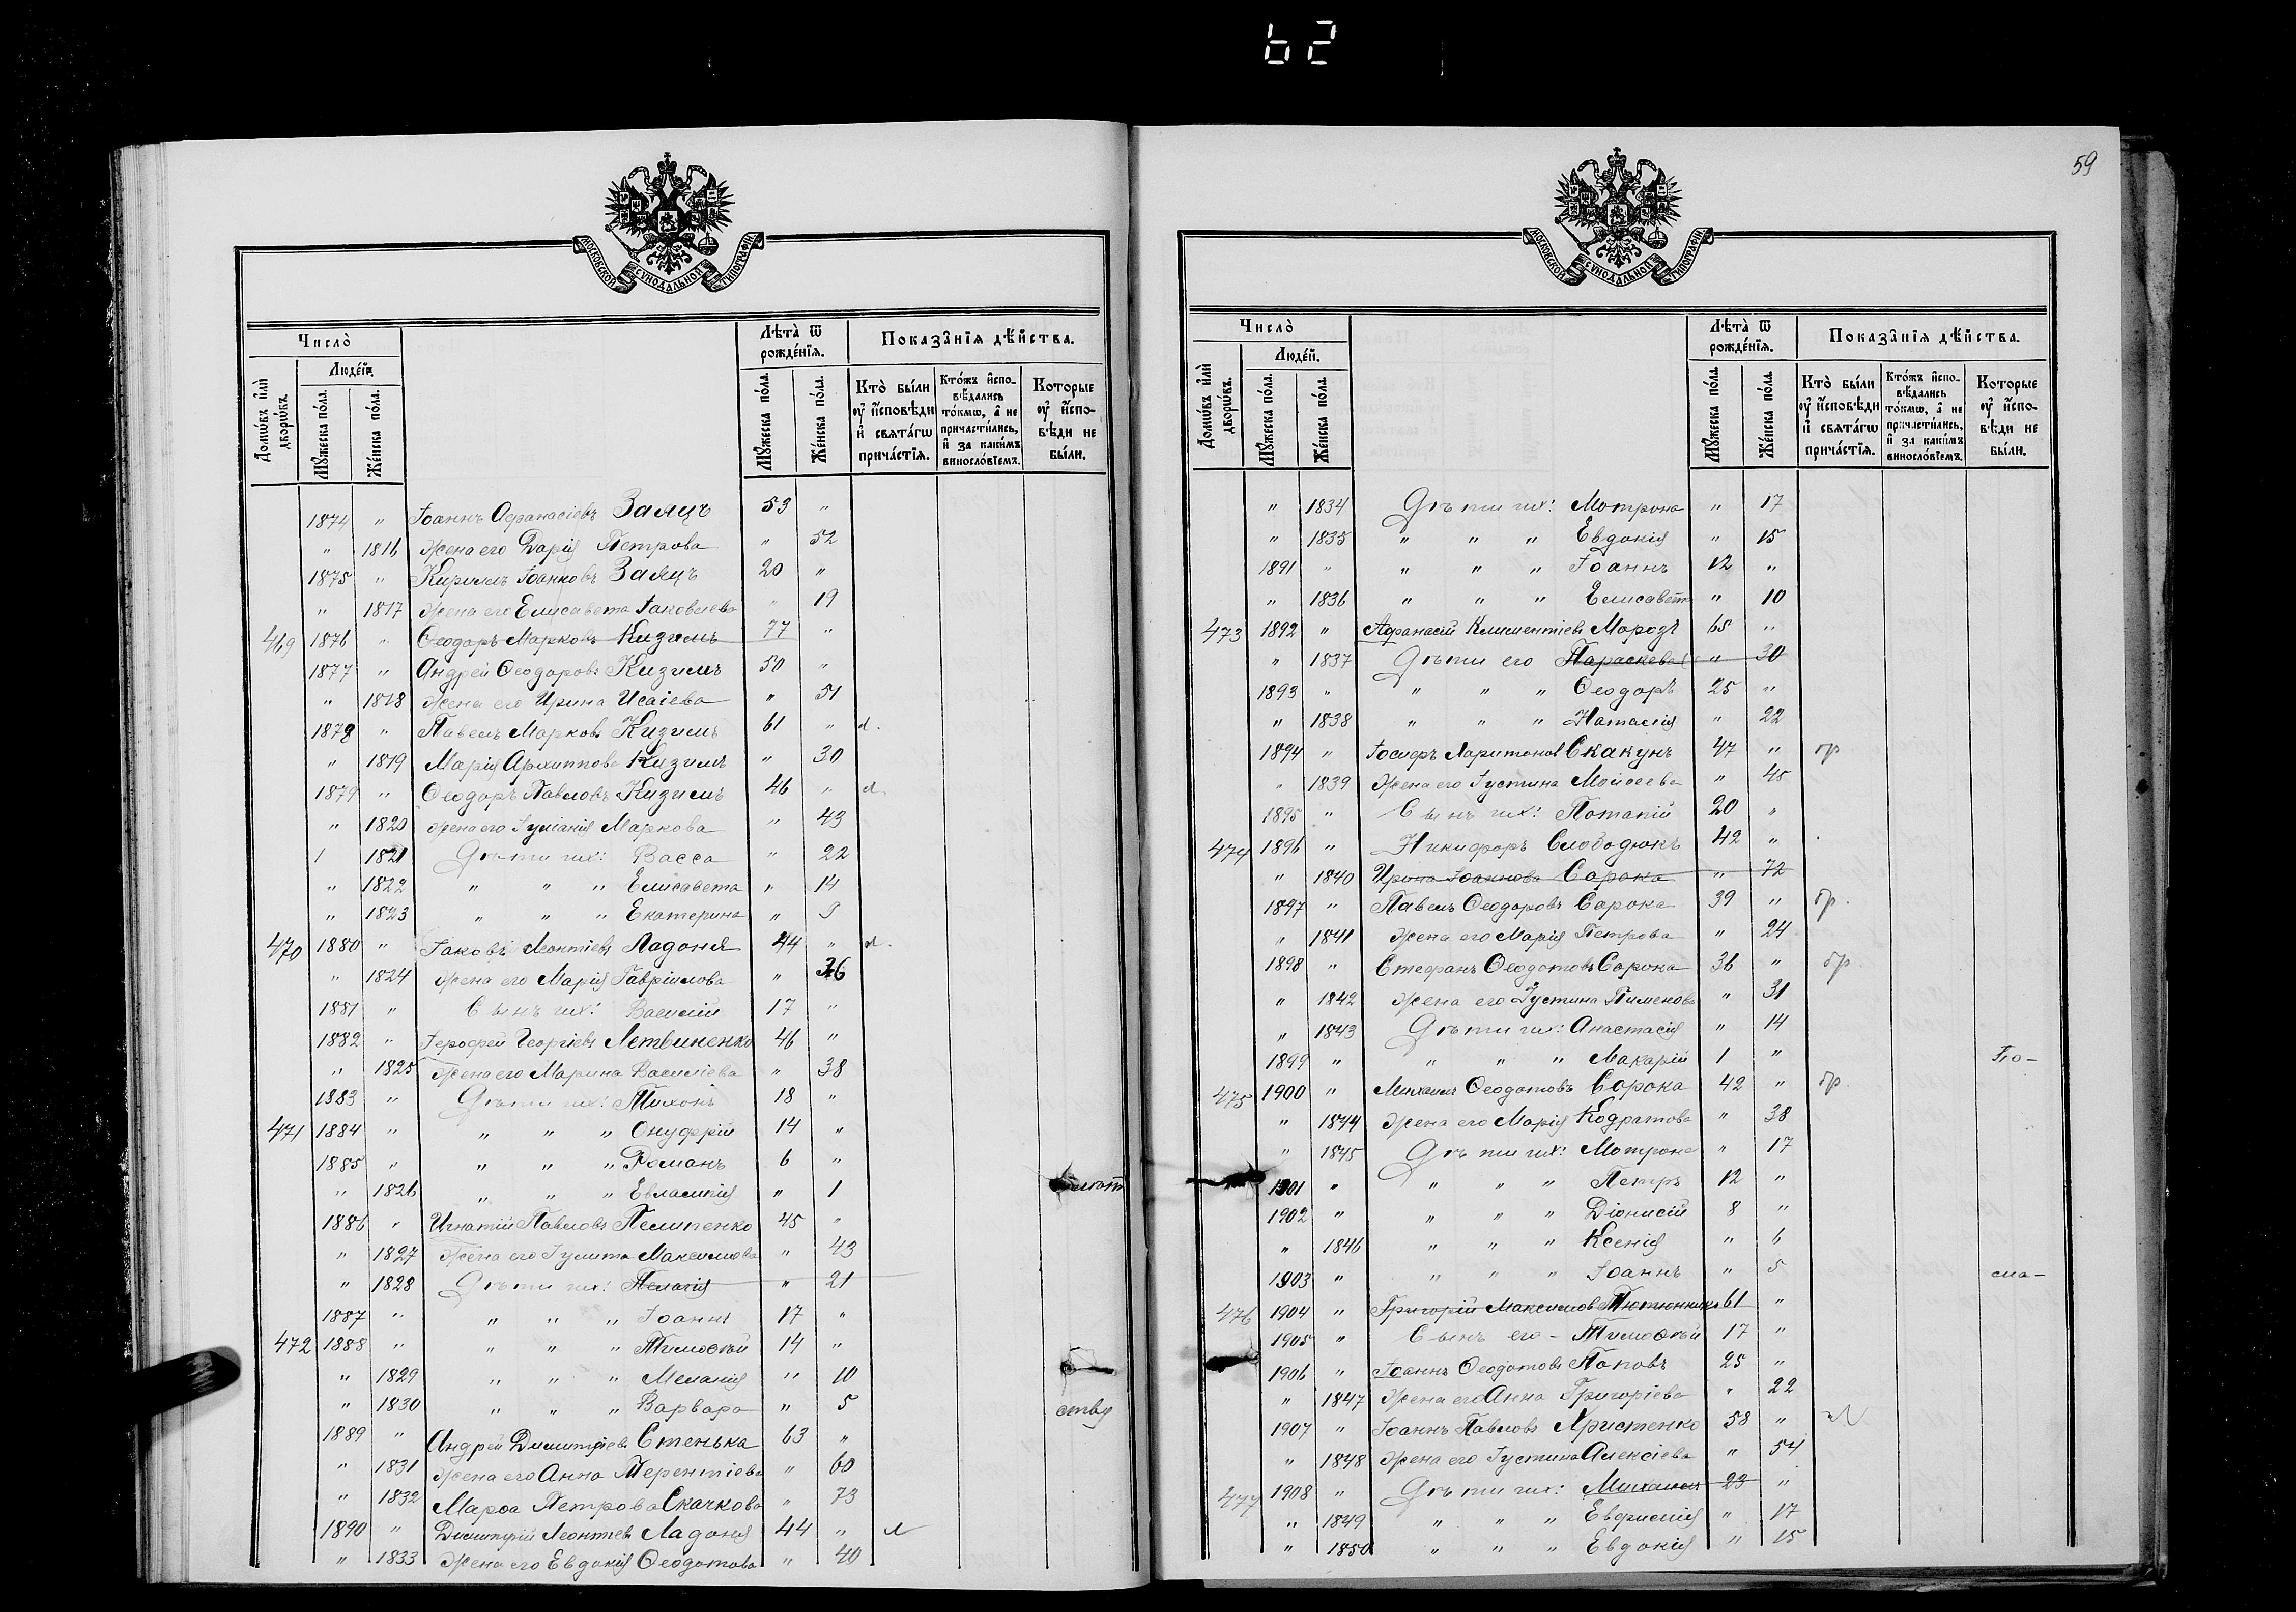 62
59
МОСКОВСКОЙ СУНОДАЛЬНОЙ ТИПОГРАФІИ
Число̀
Людей.
Домѡ́въ и҆лѝ дворѡ́въ.
Мꙋ́жеска по́ла.
Же́нска по́ла.
Лѣ́та ѿ рожде́нїѧ.
Мꙋ́жеска по́ла.
Же́нска по́ла.
Показа̑нїѧ дѣ́йства.
Кто̀ бы́ли ᲂу҆ и҆сповѣди и҆ свѧта́гѡ прича́стїѧ.
Кто́жъ и҆спо-вѣдались то́кмѡ, а҆ не причасти́лись, и҆ за каки́мъ винословїемъ.
Которые ᲂу҆ и҆спо-вѣди не бы́ли.
1874 " Іоаннъ Афанасіевъ Заяцъ 53 "
" 1816 Жена его Дарія Петрова " 52
1875 " Кириллъ Іоанновъ Заяцъ 20 "
" 1817 Жена его Елисавета Іаковлева " 19
469 1876 " Ѳеодоръ Марковъ Кизимъ 77 "
1877 " Андрей Ѳеодоровъ Кизимъ 50 "
" 1818 Жена его Ирина Исаіева " 51
1878 " Павелъ Марковъ Кизимъ 61 "
" 1819 Марія Архиппова Кизимъ " 30
1879 " Ѳеодоръ Павловъ Кизимъ 46 "
" 1820 Жена его Іуліанія Маркова " 43
1821 Дѣти ихъ: Васса " 22
" 1822 " " " Елисавета " 14
" 1823 " " " Екатерина " 9
470 1880 " Іаковъ Леонтіевъ Ладоня 44 "
" 1824 Жена его Марія Гавріилова " 36
1881 " Сынъ ихъ: Василій 17 "
1882 " Іерофей Георгіевъ Летвиненко 46 "
" 1825 Жена его Марина Василіева " 38
1883 " Дѣти ихъ: Тихонъ 18 "
471 1884 " " " " Онуфрій 14 "
1885 " " " " Романъ 6 "
" 1826 " " " Евлампія " 1
1886 " Игнатій Павловъ Пелипенко 45 "
" 1827 Жена его Іулитта Максимова " 43
" 1828 Дѣти ихъ: Пелагія " 21
1887 " " " " Іоаннъ 17 "
472 1888 " " " " Тимоѳей 14 "
" 1829 " " " Меланія " 10
" 1830 " " " Варвара " 5 ству
1889 " Андрей Димитріевъ Стенька 63 "
" 1831 Жена его Анна Терентіева " 60
" 1832 Марѳа Петрова Скачкова " 73
1890 " Димитрій Леонтіевъ Ладоня 44 "
" 1833 Жена его Евдокія Ѳеодотова " 40
Число̀
Людей.
Домѡ́въ и҆лѝ дворѡ́въ.
Мꙋ́жеска по́ла.
Же́нска по́ла.
Лѣ́та ѿ рожде́нїѧ.
Мꙋ́жеска по́ла.
Же́нска по́ла.
Показа̑нїѧ дѣ́йства.
Кто̀ бы́ли ᲂу҆ и҆сповѣди и҆ свѧта́гѡ прича́стїѧ.
Кто́жъ и҆спо-вѣдались то́кмѡ, а҆ не причасти́лись, и҆ за каки́мъ винословїемъ.
Которые ᲂу҆ и҆спо-вѣди не бы́ли.
" 1834 Дѣти ихъ: Мотрона " 17
" 1835 " " " Евдокія " 15
1891 " " " " Іоаннъ 12 "
" 1836 " " " Елисавета " 10
473 1892 " Афанасій Климентіевъ Мародъ 65 "
" 1837 Дѣти его Параскева " 30
1893 " " " " Ѳеодоръ 25 "
" 1838 " " " Наталія " 22
1894 " Іосифъ Харитоновъ Скакунъ 47 " бр
" 1839 Жена его Іустина Мойсеева " 45
1895 " Сынъ ихъ: Потапій 20 "
474 1896 " Никифоръ Слободюкъ 42 "
" 1840 Ирина Іоаннова Сорока " 72
1897 " Павелъ Ѳеодоровъ Сорока 39 " бр.
" 1841 Жена его Марія Петрова " 24
1898 " Стефанъ Ѳеодотовъ Сорока 36 " бр.
" 1842 Жена его Іустина Пименова " 31
" 1843 Дѣти ихъ: Анастасія " 14
1899 " " " " Макарій 1 " По-
475 1900 " Михаилъ Ѳеодотовъ Сорока 42 " бр.
" 1844 Жена его Марія Кодратова " 38
" 1845 Дѣти ихъ: Мотрона " 17
1901 " " " " Петръ 12 "
1902 " " " " Діонисій 8 "
" 1846 " " " Ксенія " 6
1903 " " " " Іоаннъ " 5 ма-
476 1904 " Григорій Максимовъ Тютюнниковъ 61 "
1905 " Сынъ его - Тимоѳей 17 "
1906 " Іоаннъ Ѳеодотовъ Поповъ 25 "
" 1847 Жена его Анна Григоріева " 22
1907 " Іоаннъ Павловъ Христенко 58 "
" 1848 Жена его Іустина Алексіева " 54
477 1908 " Дѣти ихъ: Михаилъ 23 "
" 1849 " " " Евфимія " 17
" 1850 " " " Евдокія " 15